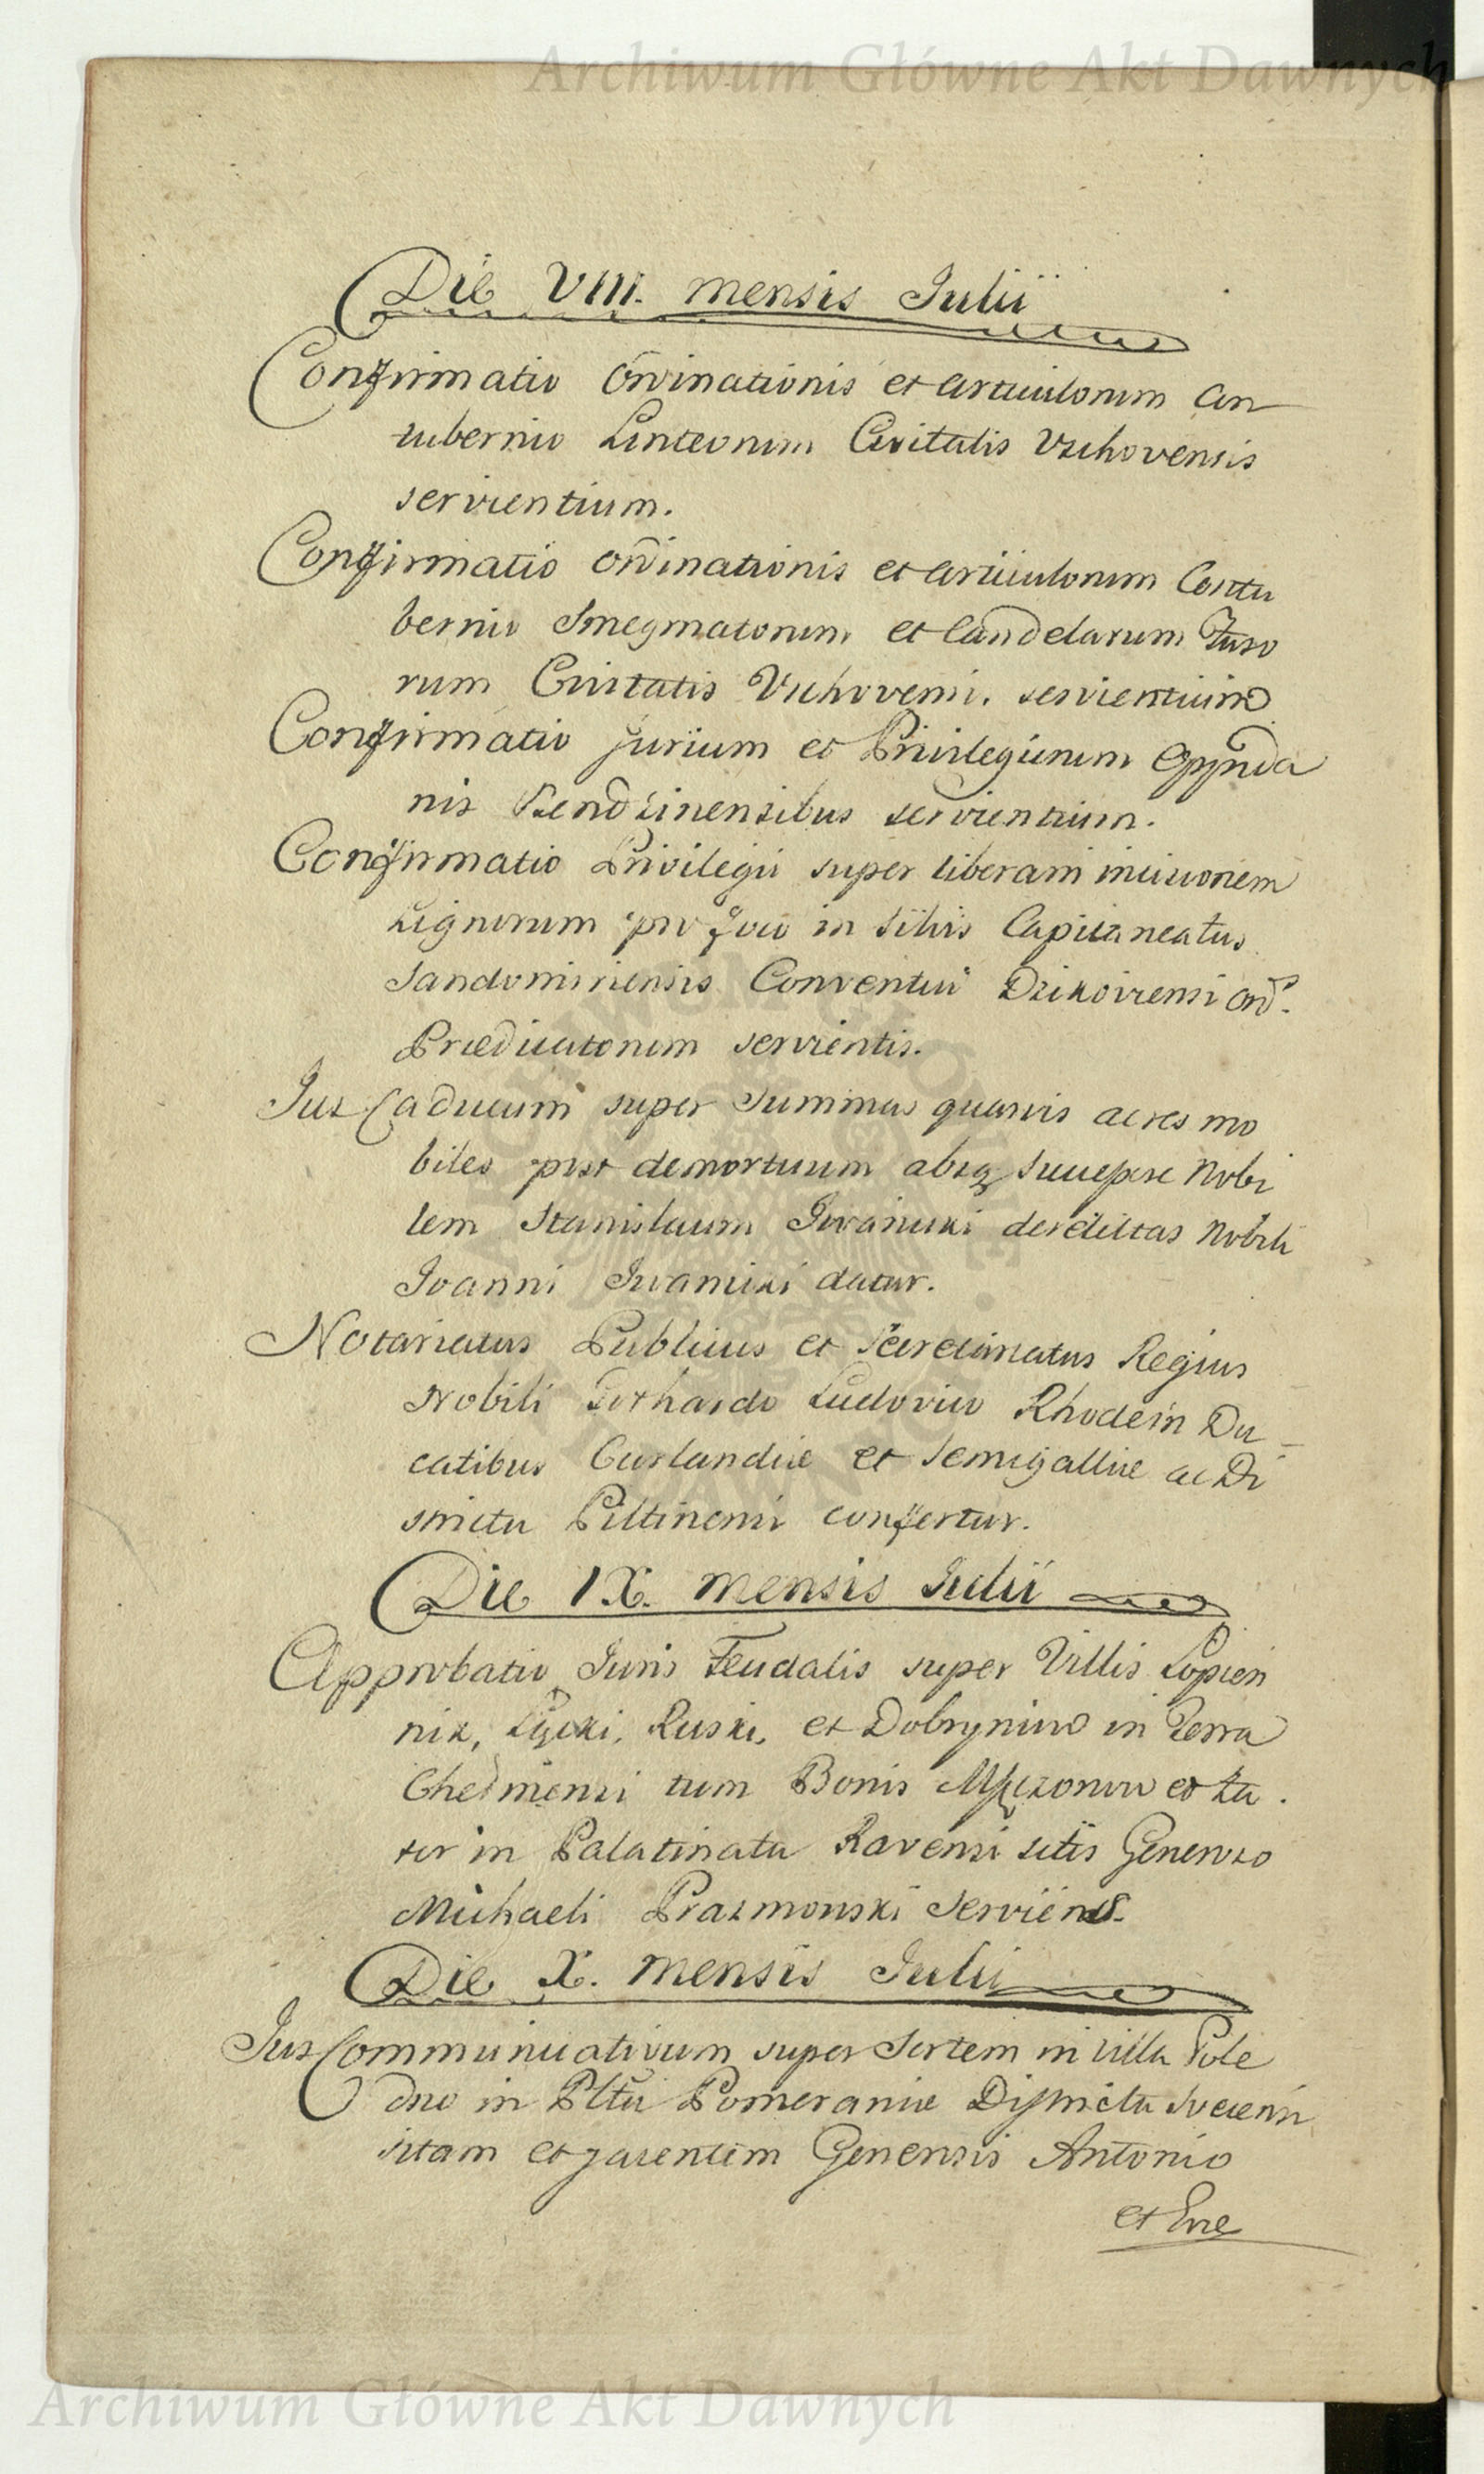 Archiwum Główne Akt Dawnych
Die VIII. mensis Julii
Confirmatio Ordinationis et articulorum Con
tubernio Linteonum Civitatis Vschovensis
servientium.
Confirmatio ordinationis et articulorum Contu
bernio Smegmatorum et Candelarum Fuso
rum Civitatis Vschovensi. servientium
Confirmatio Jurium et Privilegiorum Oppida
nis servientium.
Confirmatio Privilegii super liberam incisionem
Lignorum pro foco in Silvis Capitaneatus
Sandomiriensis Conventui Dzikoviensi Ord.
Prædicatorum servientis.
Jus Caducum super Summas quasvis ac res mo
biles post demortuum absq, Successore Nobi
lem Stanislaum Iwanicki derelictas Nobili
Joanni Iwanicki datur.
Notariatus Publicus et Secretariatus Regius
Nobili Gothardo Ludovico Rhode in Du
catibus Curlandiæ et Semigalliæ ac Di
strictu Piltinensi confertur.
Die IX. mensis Julii
Approbatio Juris Feudalis super Villis Łopien
nik, Ruski, et Dobryniow in Terra
Chelmensi tum Bonis et Za
tor in Palatinatu Ravensi sitis Generoso
Michaeli Prazmowski serviens.
Die X. mensis Julii
Jus Communicativum super Sortem in Villa Pole
dno in Pltũ Pomeraniæ Districtu Svecensi
sitam et jacentem Generosis Antonio
et Evæ
Archiwum Główne Akt Dawnych